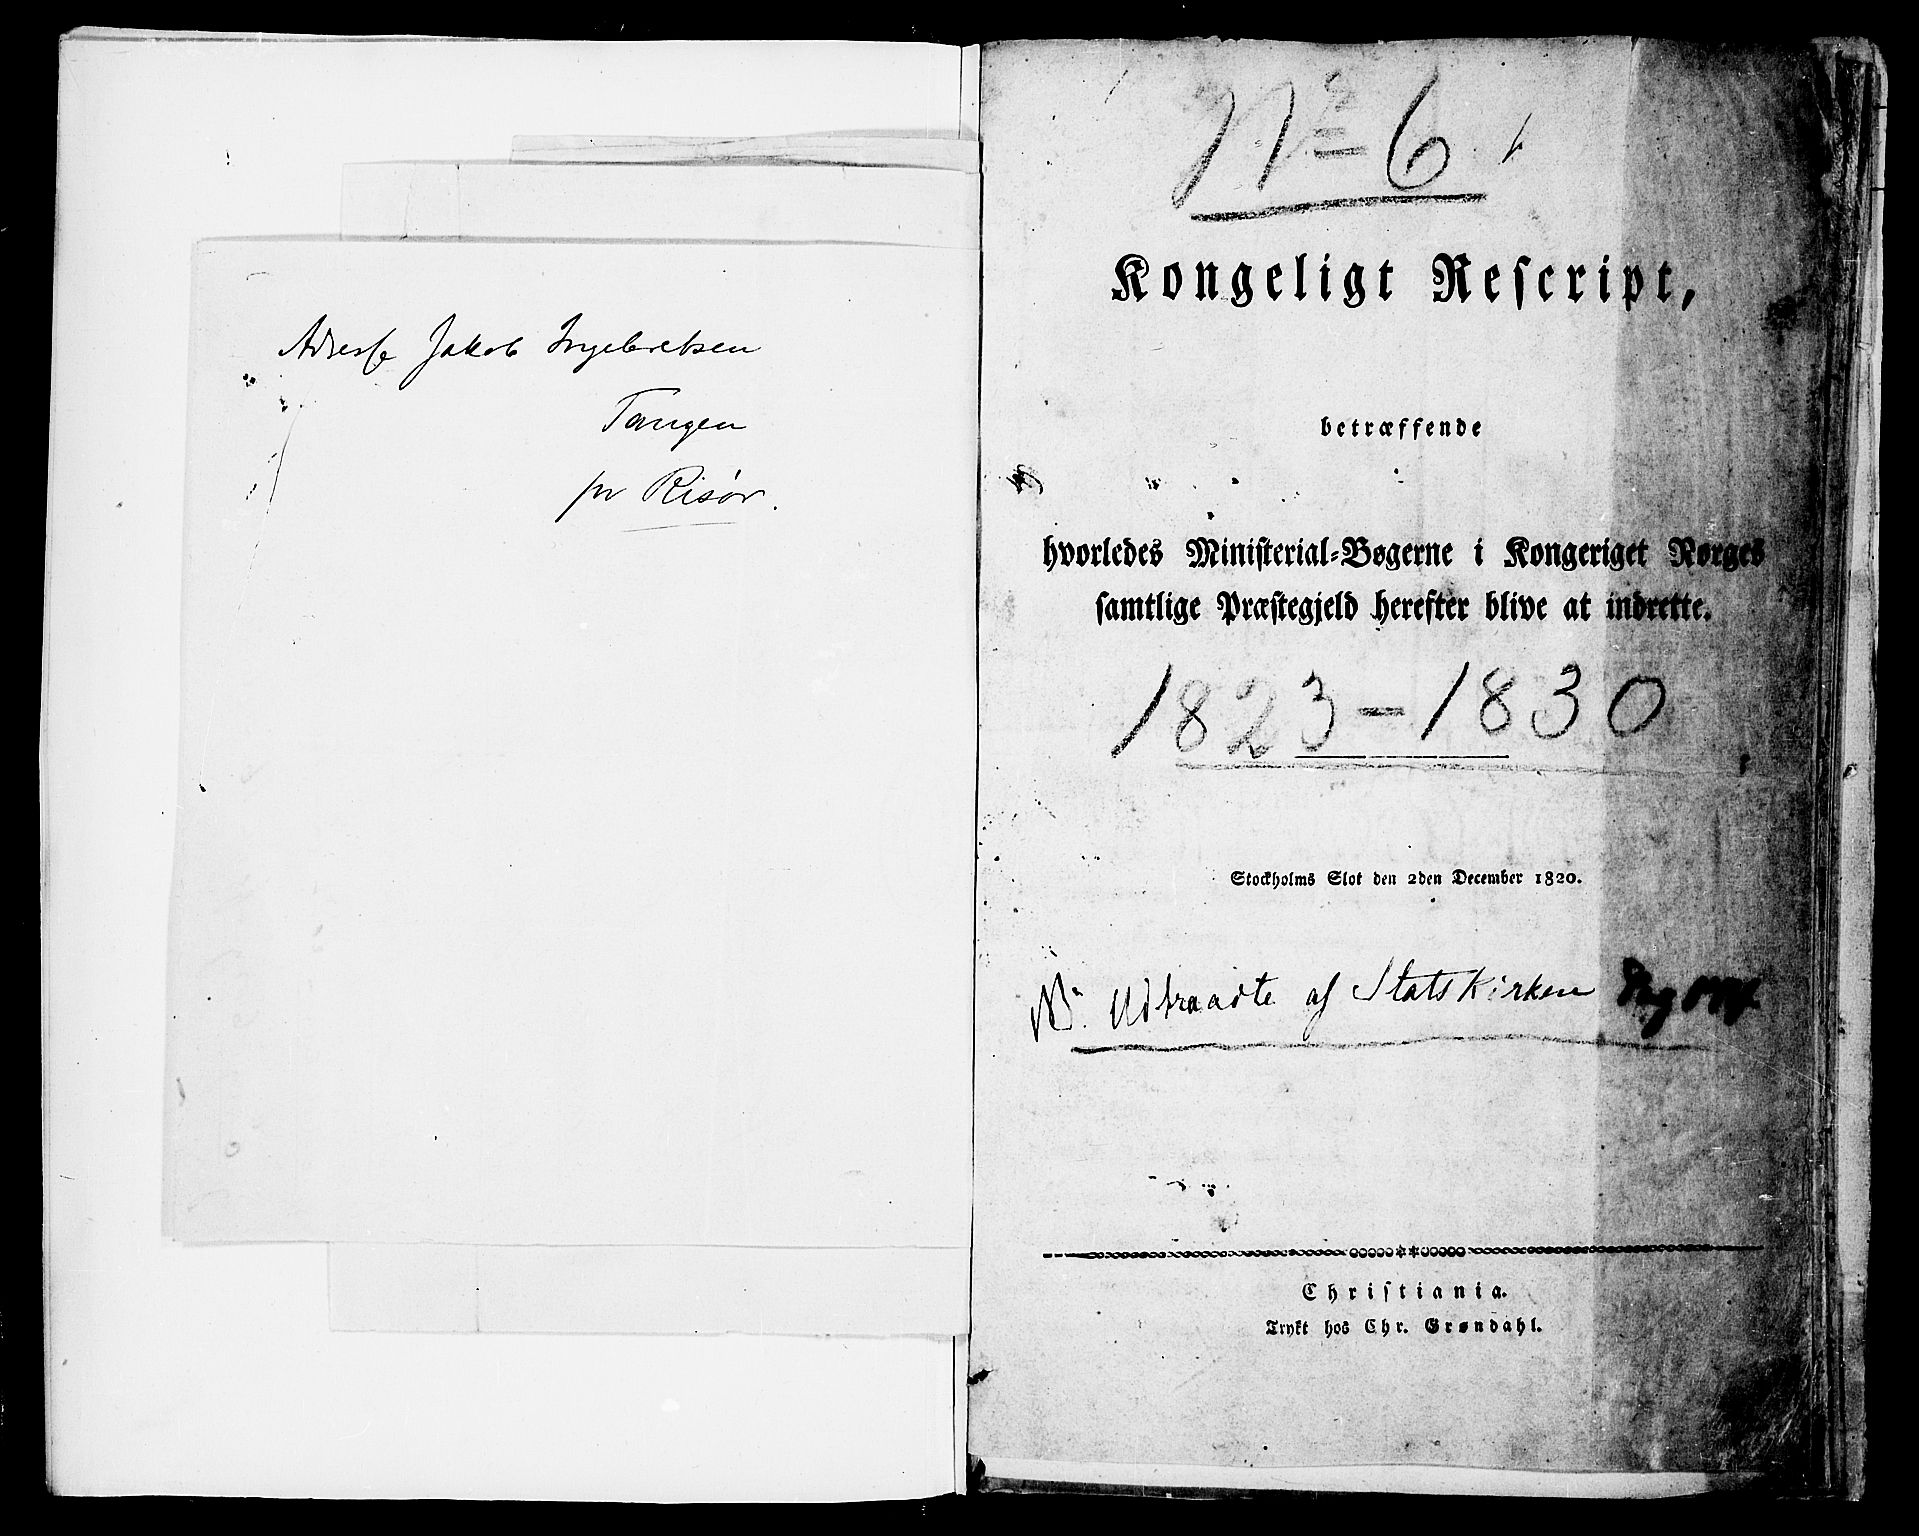 Adresse Jakob Ingebretsen
Tangen
pr Risør.
No 6
Kongeligt Rescript,
betræffende
hvorledes Ministerial-Bøgerne i Kongeriget Norges
samtlige Præstegjeld herefter blive at indrette.
1823-1830
Stockholms Slot den 2den December 1820.
NB. Udtraadte af Statskirken
Christiania.
Trykt hos Chr. Grøndahl.